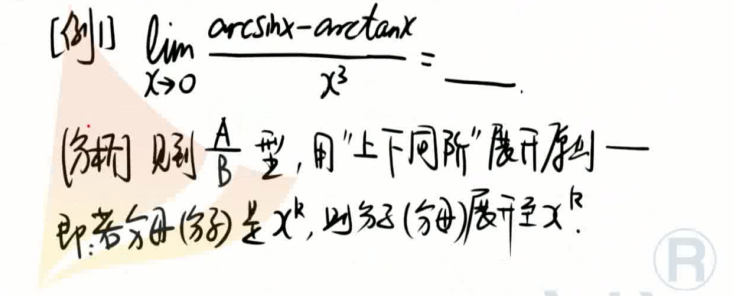 [例1] lim x→0 (arcsinx-arctanx)/x³ = ____.
[分析] 见到 A/B 型,用"上下同阶"展开原则——
即:若分母(分子)是x^k,则分子(分母)展开至x^k.
®